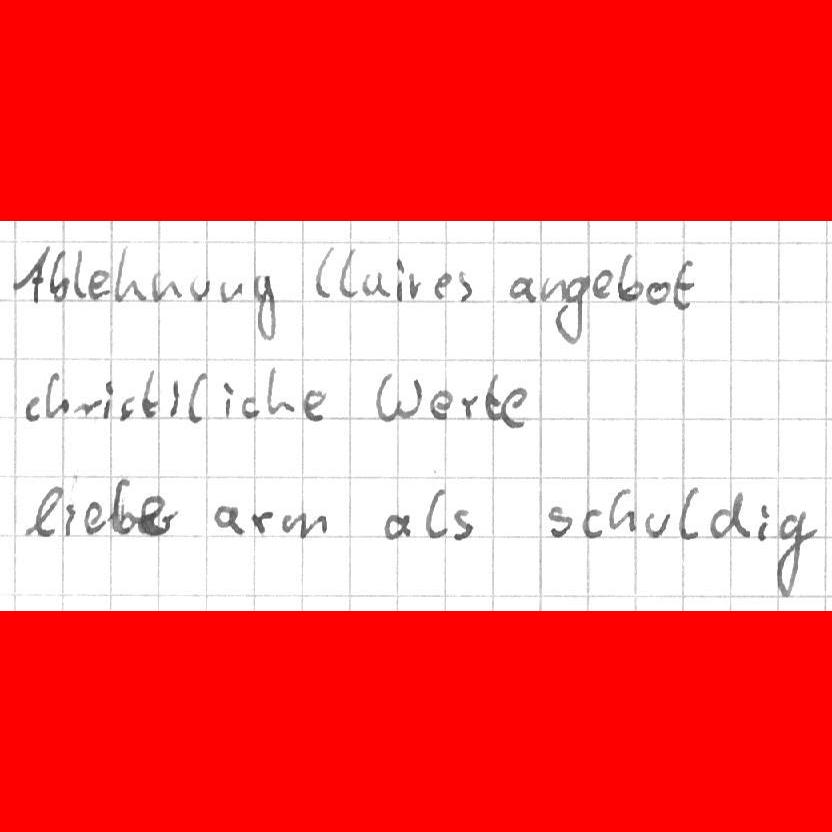 Ablehnung Claires angebot
christliche Werte
lieber arm als schuldig